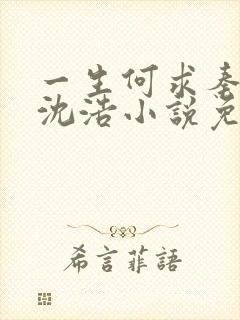 一生何求秦
沈浩小說免
希言菲語